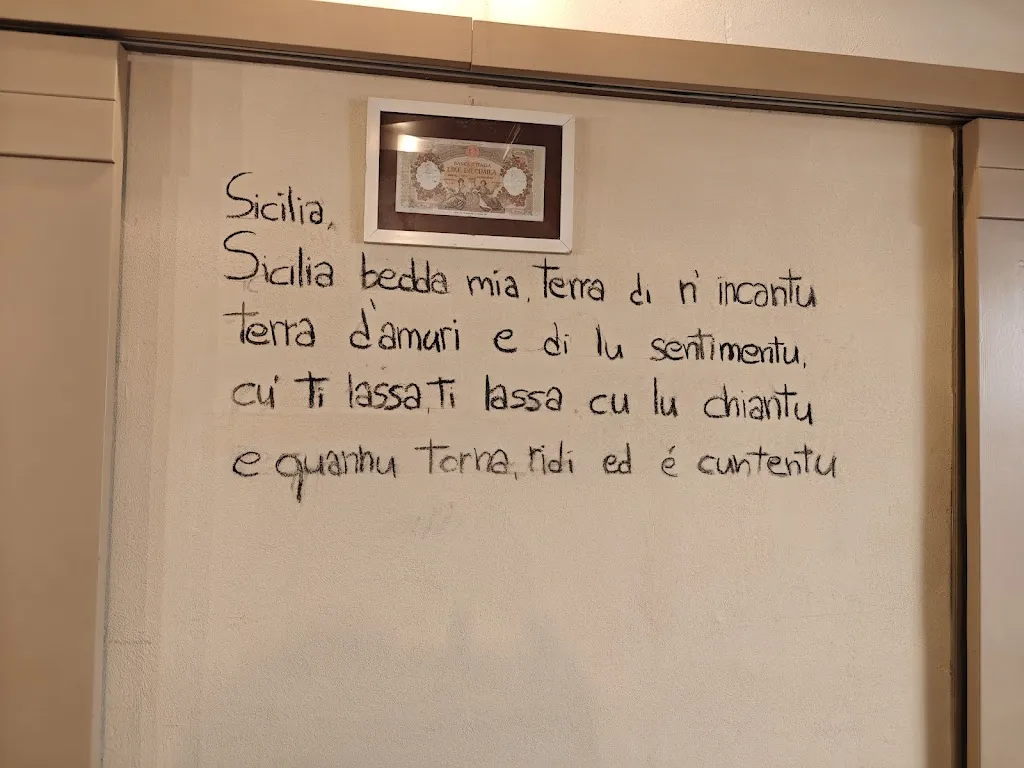 BANCA D'ITALIA
LIRE DIECIMILA
Sicilia,
Sicilia bedda mia, terra di n' incantu
terra d'amuri e di lu sentimentu,
cu' ti lassa, ti lassa cu lu chiantu
e quannu torna, ridi ed é cuntentu